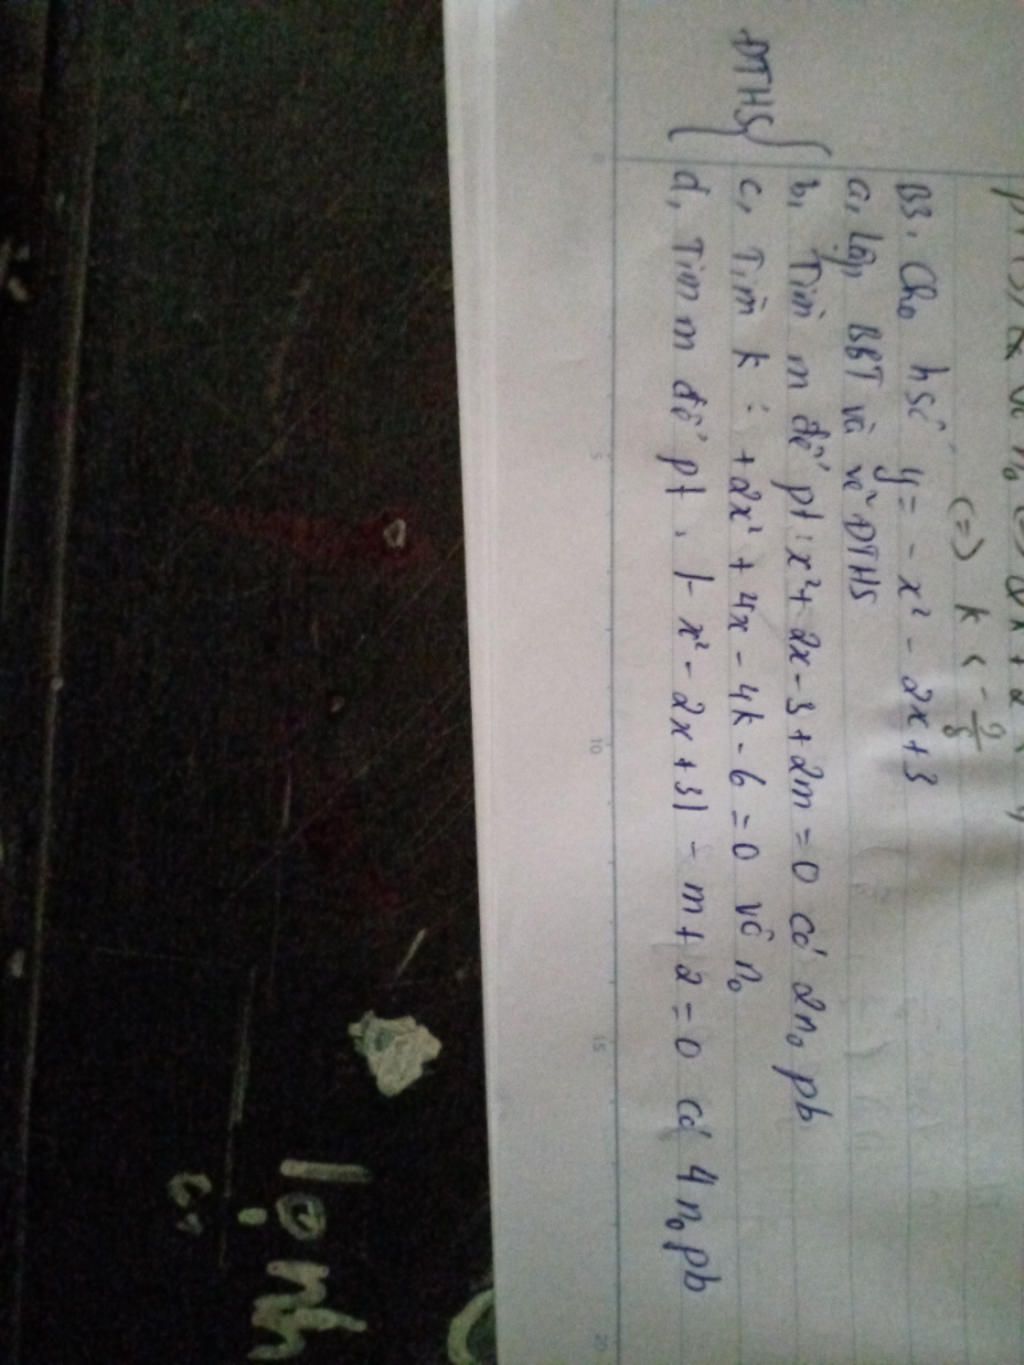 (=) k < -2/8
B3, Cho hsố y = - x² - 2x + 3
a, Lập BBT và vẽ ĐTHS
b, Tìm m để pt : x² + 2x - 3 + 2m = 0 có 2 n₀ pb
c, Tìm k : + 2x² + 4x - 4k - 6 = 0 vô n₀
d, Tìm m để pt , |- x² - 2x + 3| - m + 2 = 0 có 4 n₀ pb
ĐTHS
0
5
10
15
20